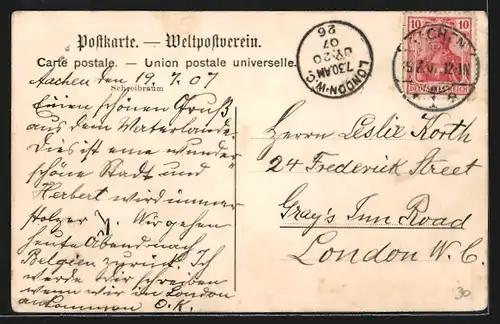 Postkarte. — Weltpostverein.
Carte postale. — Union postale universelle.
Schreibraum
Aachen den 19.7.07
Einen schönen Gruß
aus dem Vaterlande.
Dies ist eine wunder
schöne Stadt und
Herbert wird immer
stolzer. Wir gehen
heute Abend nach
Belgien zurück. Ich
werde Dir schreiben
wenn wir in London
ankommen O.K.
LONDON·W.C.
7.30AM
JY 20
07
26
10 10
DEUTSCHES REICH
AACHEN
Herrn Leslie Korth
24 Frederick Street
Gray's Inn Road
London W.C.
30